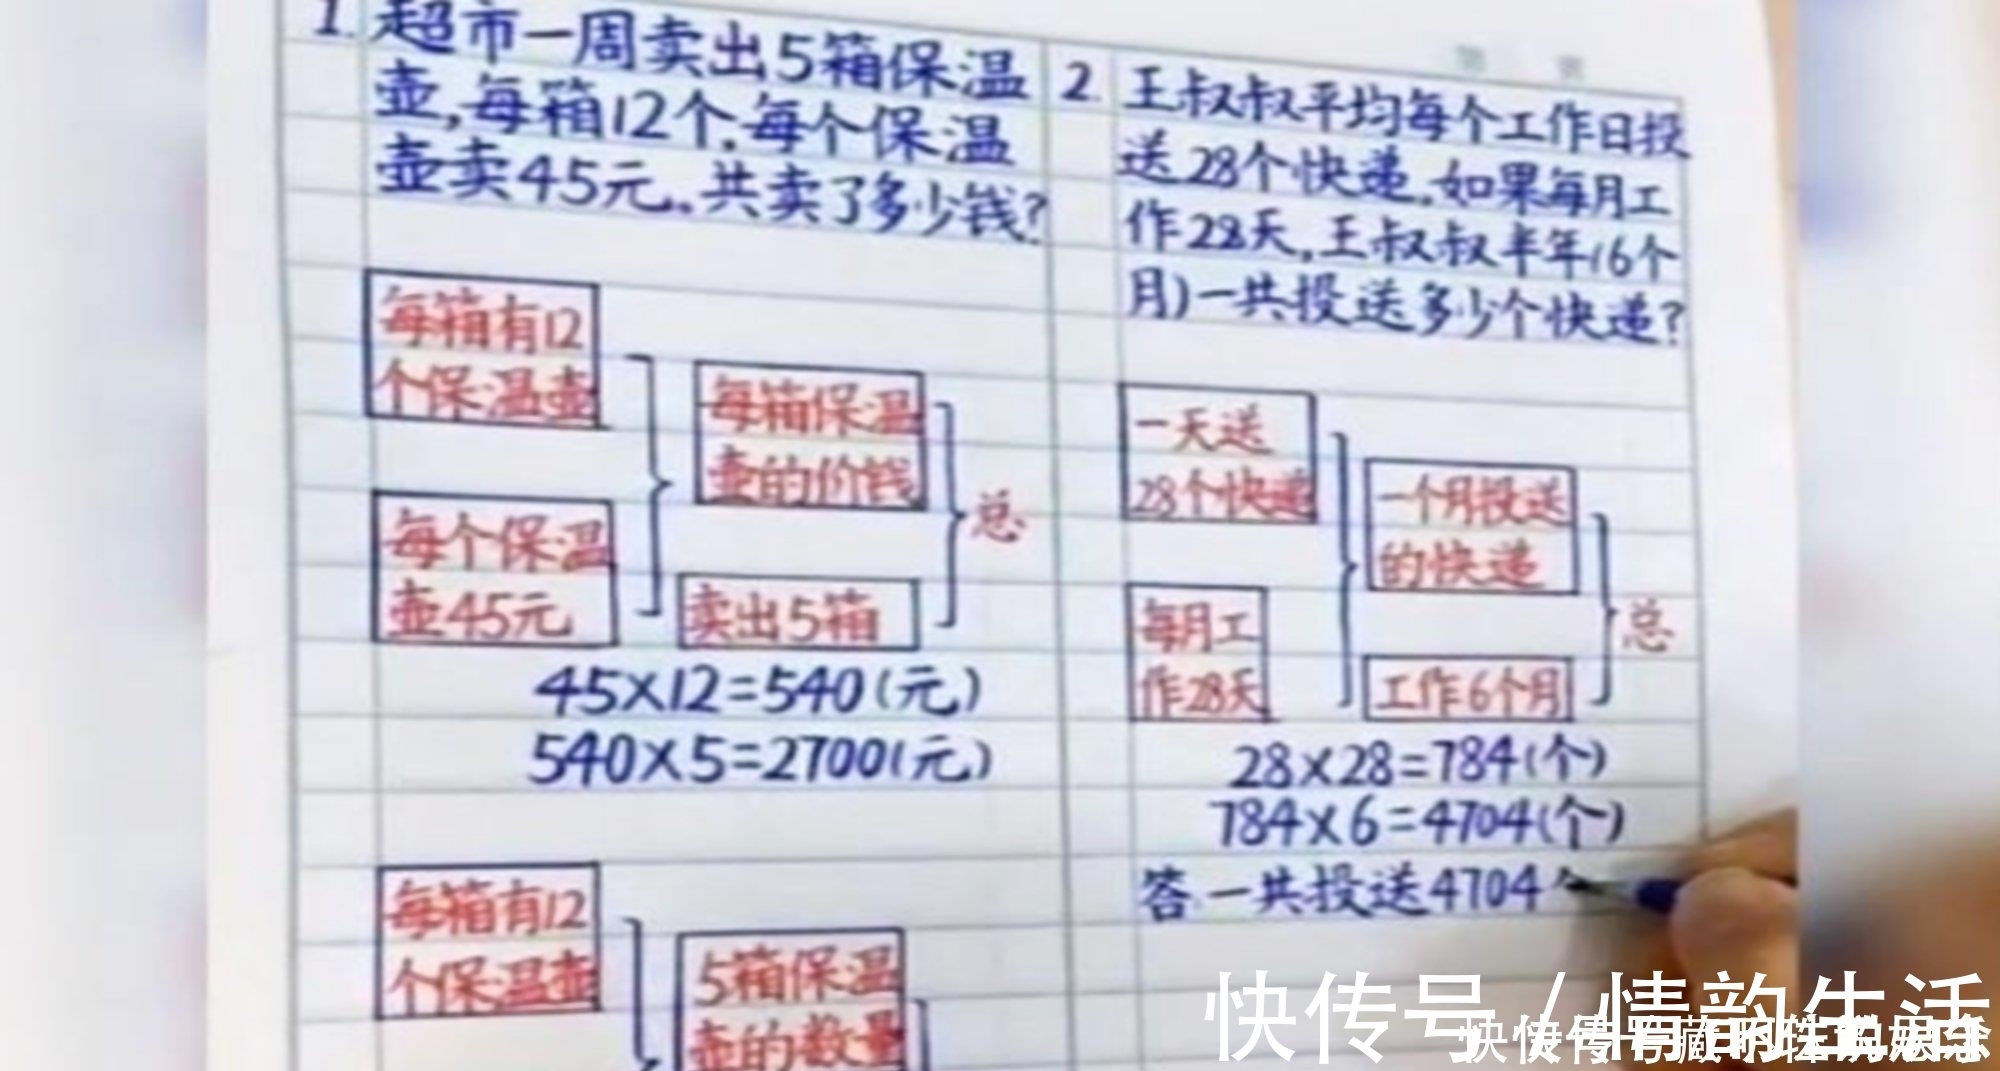 1. 超市一周卖出5箱保温
壶,每箱12个,每个保温
壶卖45元。共卖了多少钱?
每箱有12
个保温壶
每箱保温
壶的价钱
总
每个保温
壶45元
卖出5箱
45×12=540(元)
540×5=2700(元)
每箱有12
个保温壶
5箱保温
壶的数量
2. 王叔叔平均每个工作日投
送28个快递,如果每月工
作28天,王叔叔半年(6个
月)一共投送多少个快递?
一天送
28个快递
一个月投送
的快递
总
每月工
作28天
工作6个月
28×28=784(个)
784×6=4704(个)
答一共投送4704个
快传号/情韵生活